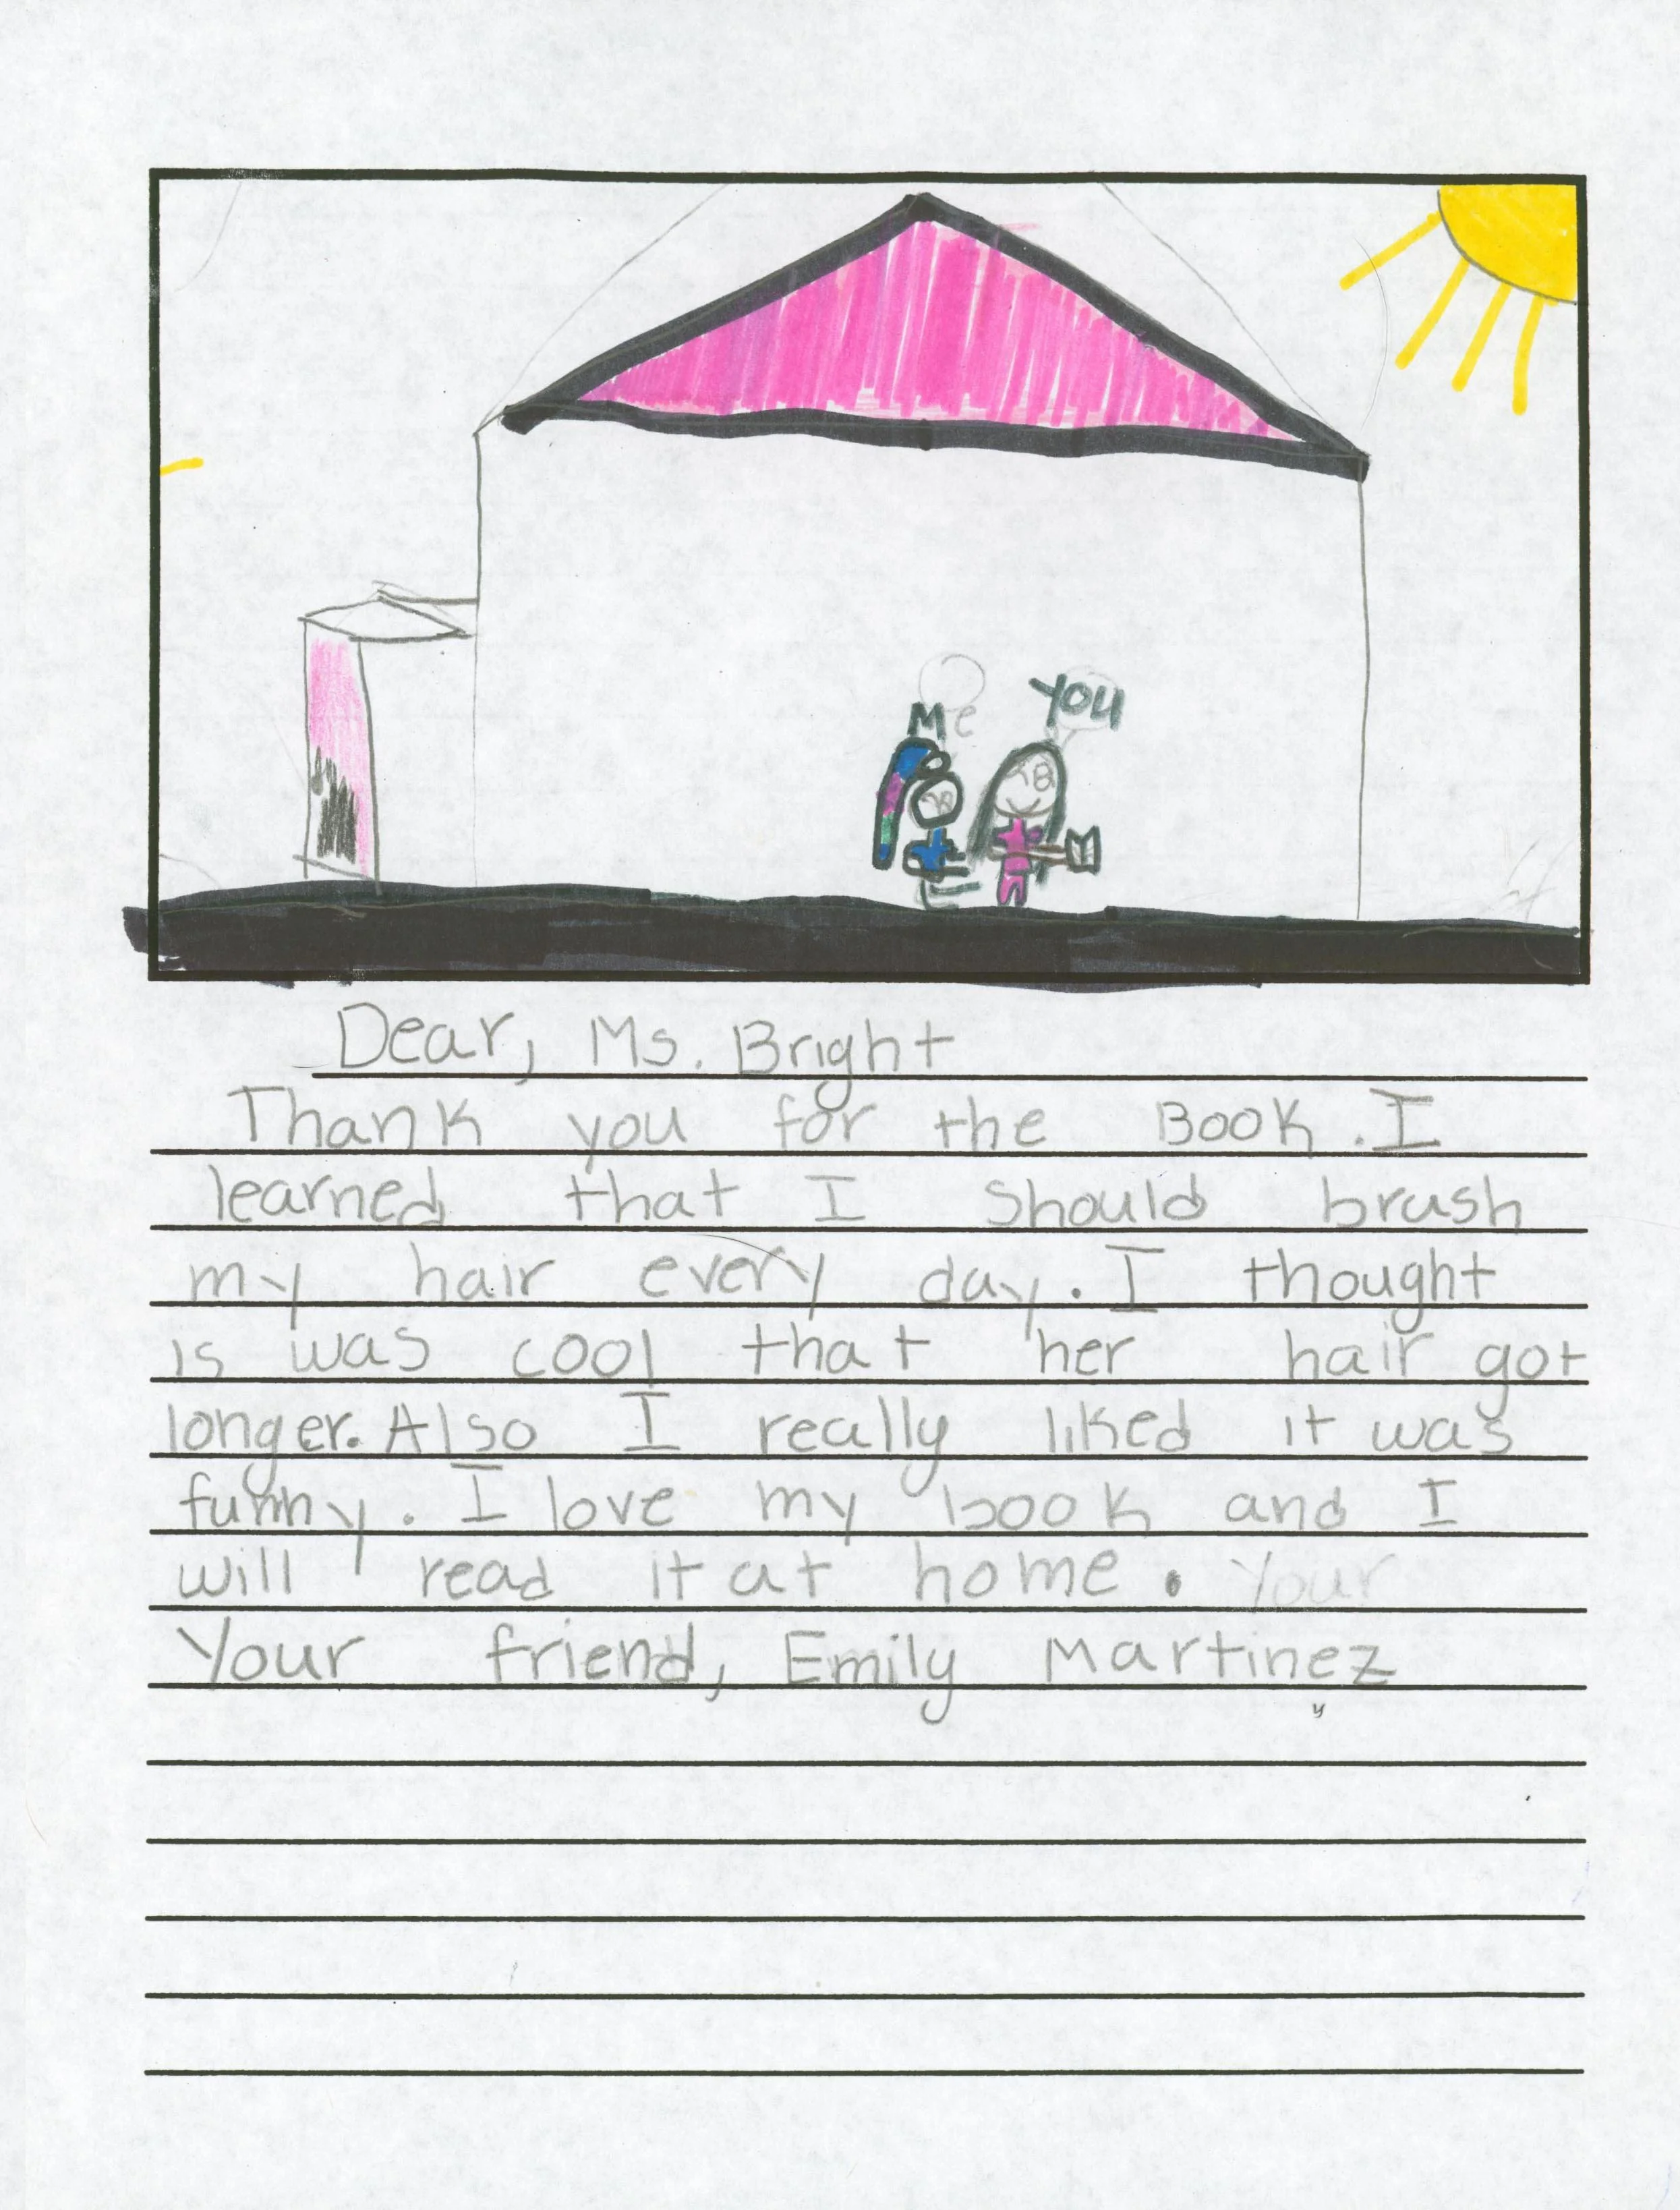 Me
You
Dear, Ms. Bright
Thank you for the Book. I
learned that I should brush
my hair every day. I thought
is was cool that her hair got
longer. Also I really liked it was
funny. I love my book and I
will read it at home. Your
Your friend, Emily Martinez